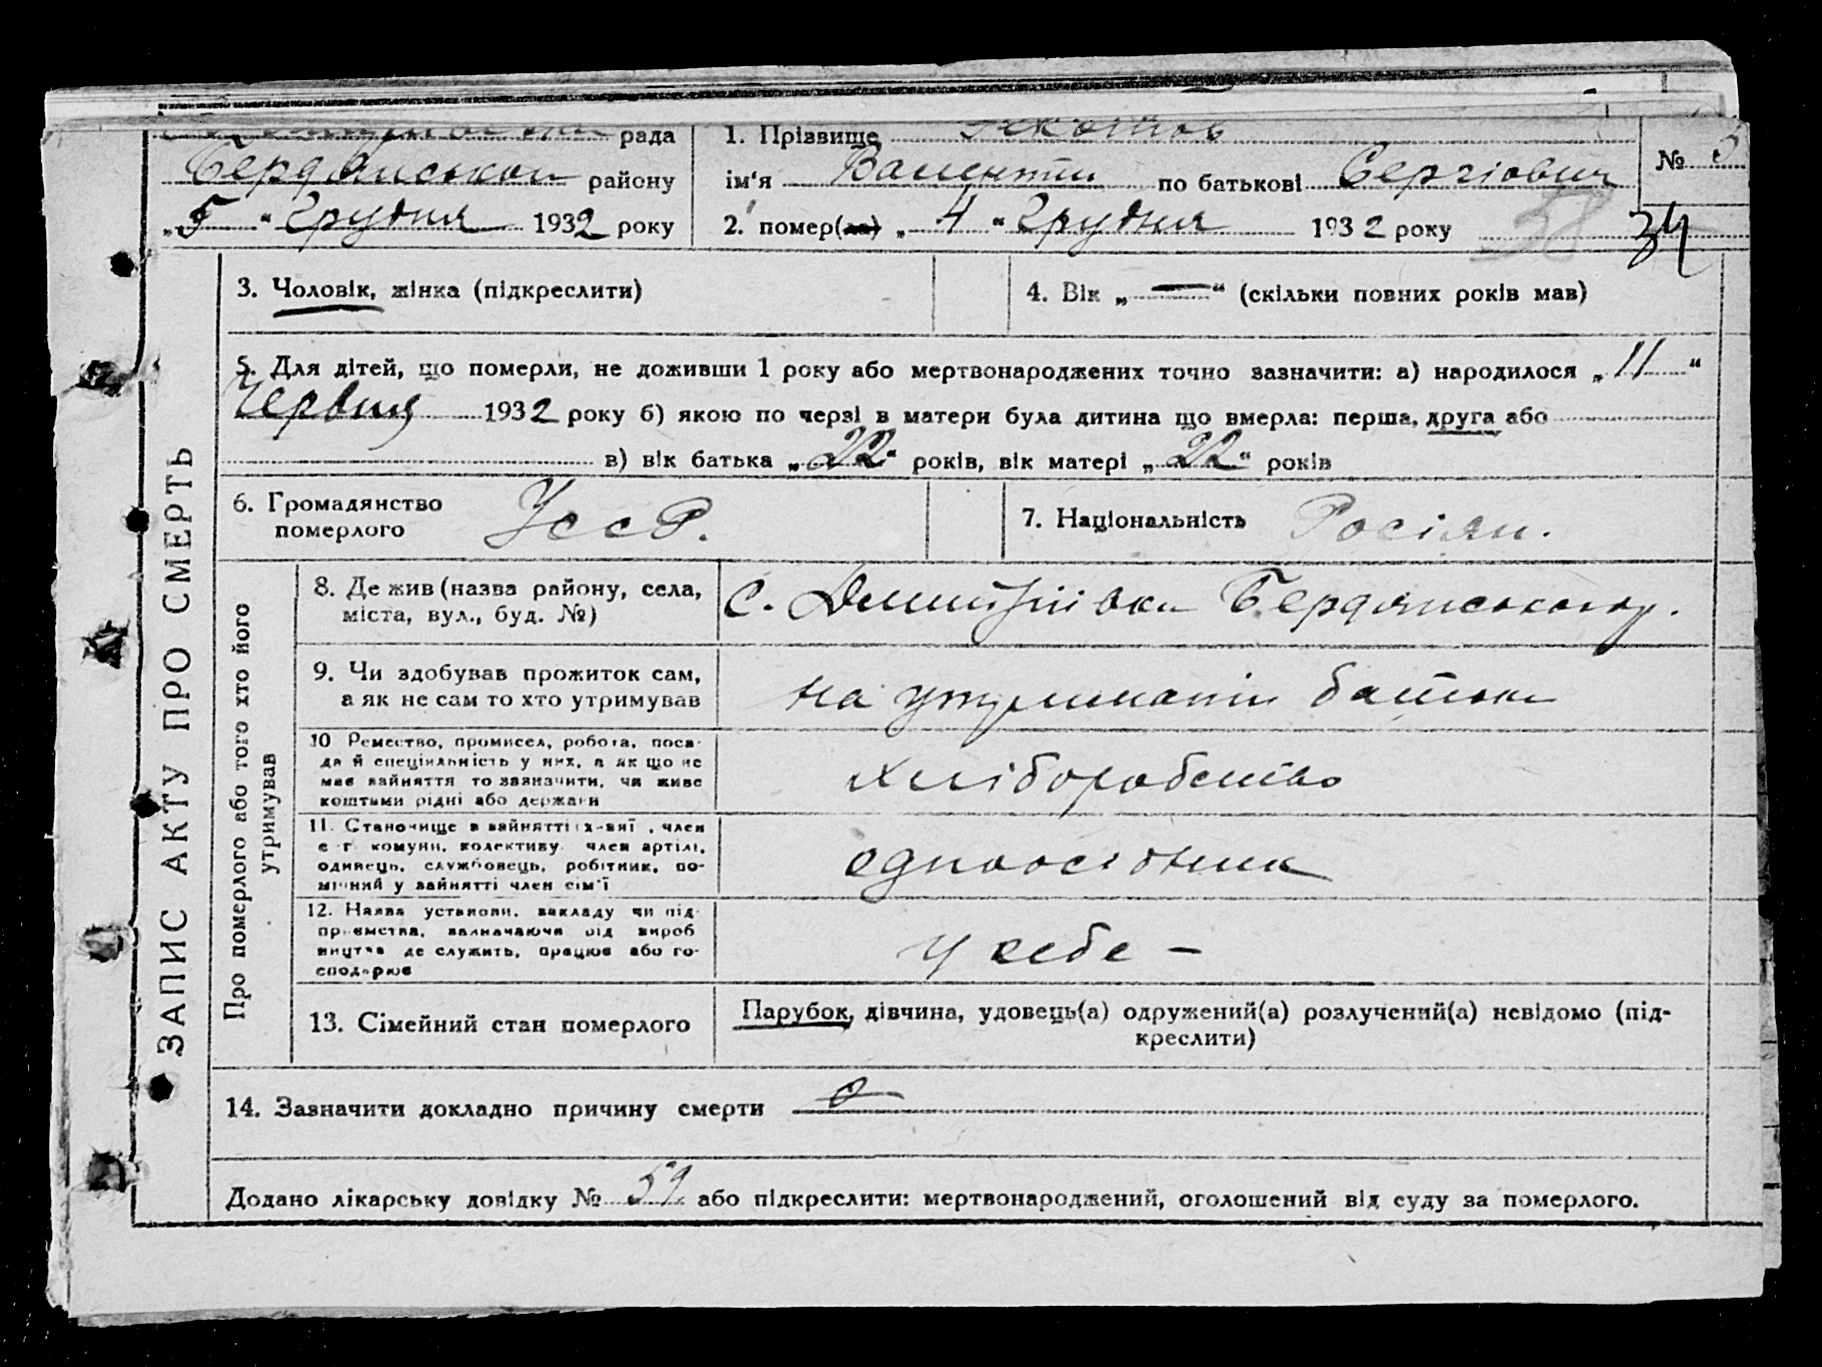 рада
Бердянської району
„5“ Грудня 1932 року
1. Прізвище
ім'я Валентин по батькові Сергіович
2. помер(ла) „4“ Грудня 1932 року
№
34
ЗАПИС АКТУ ПРО СМЕРТЬ
3. Чоловік, жінка (підкреслити)
4. Вік „—“ (скільки повних років мав)
5. Для дітей, що померли, не доживши 1 року або мертвонароджених точно зазначити: а) народилося „11“
Червня 1932 року б) якою по черзі в матери була дитина що вмерла: перша, друга або
в) вік батька „22“ років, вік матері „22“ років
6. Громадянство
померлого
УССР.
7. Національність Росіян.
Про померлого або того хто його
утримував
8. Де жив (назва району, села,
міста, вул., буд. №)
с. Дмитрівка Бердянського р.
9. Чи здобував прожиток сам,
а як не сам то хто утримував
на утриманні батька
10 Ремество, промисел, робота, поса-
да й спеціяльність у них, а як що не
має зайняття то зазначити, чи живе
коштами рідні або держави
хліборобство
11. Становище в зайнятті член
комуни, колективу член артілі,
одинець, службовець, робітник, по-
мічний у зайнятті член сім'ї
одноосібник
12. Назва установи, закладу чи під-
приємства, зазначаючи від вироб
ництва де служить, працює або го-
сподарює
у себе —
13. Сімейний стан померлого
Парубок, дівчина, удовець(а) одружений(а) розлучений(а) невідомо (під-
креслити)
14. Зазначити докладно причину смерти
Додано лікарську довідку № 59 або підкреслити: мертвонароджений, оголошений від суду за померлого.